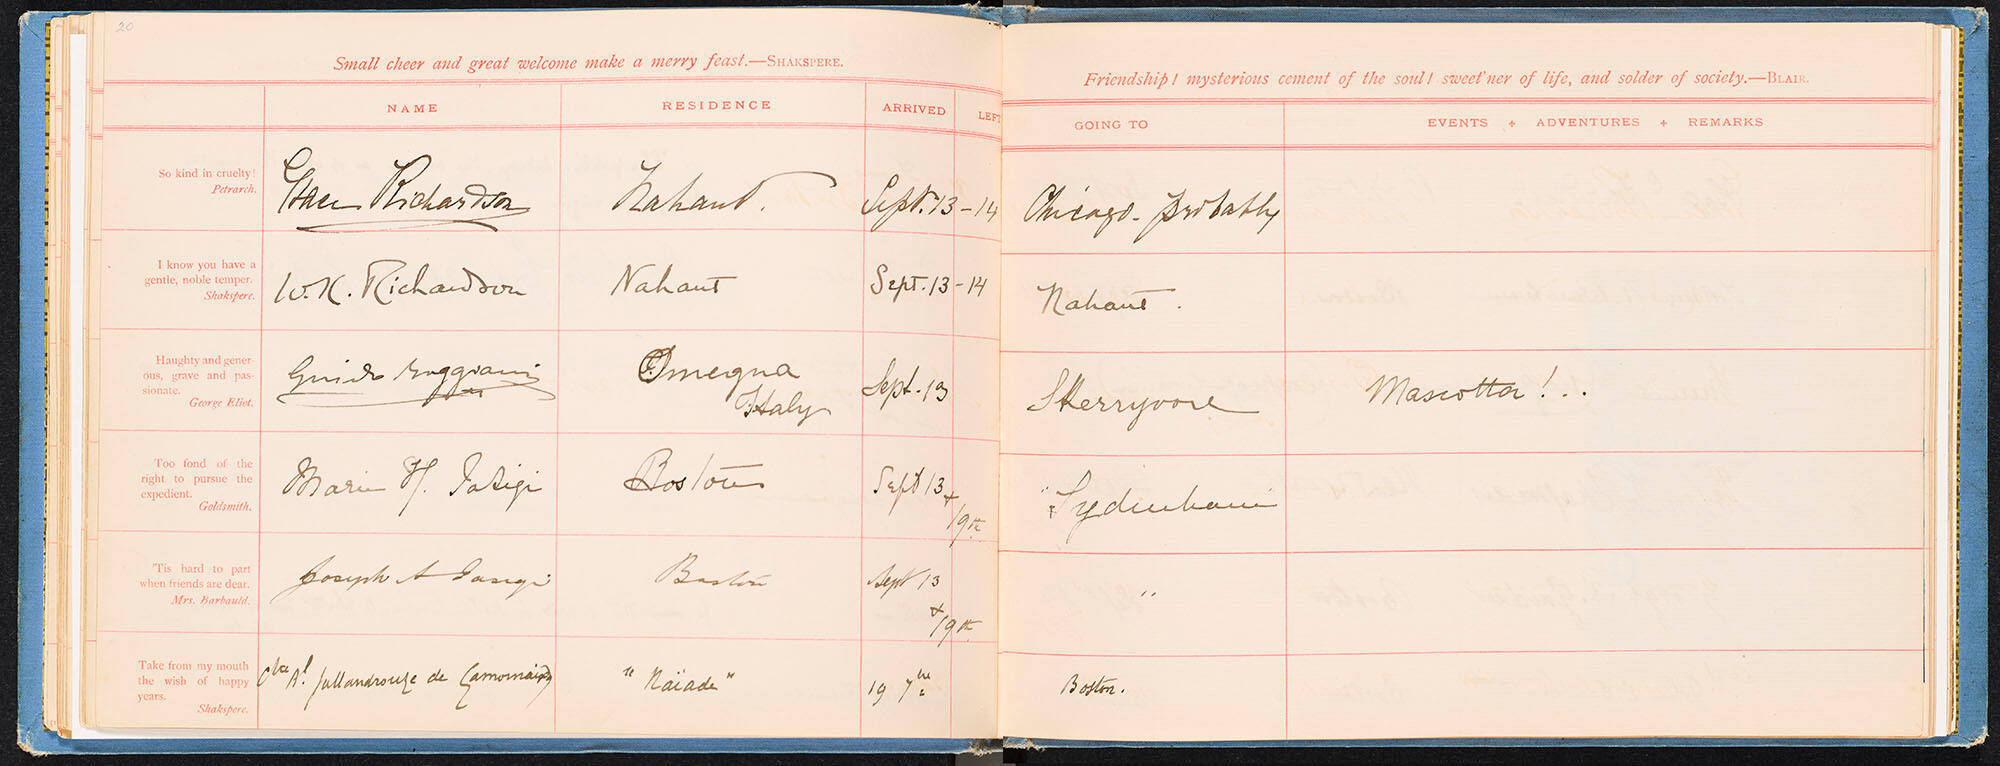 20
Small cheer and great welcome make a merry feast.—SHAKSPERE.
NAME RESIDENCE ARRIVED LEFT
So kind in cruelty!
Petrarch.
Richardson Nahant. Sept. 13 - 14
I know you have a
gentle, noble temper.
Shakspere.
W. K. Richardson Nahant Sept. 13 - 14
Haughty and gener-
ous, grave and pas-
sionate.
George Eliot.
Guido Omegna
Italy
Sept. 13
Too fond of the
right to pursue the
expedient.
Goldsmith.
Marie H. Iasigi Boston Sept 13
+
19th
'Tis hard to part
when friends are dear.
Mrs. Barbauld.
Joseph A Iasigi Boston Sept 13
+
19th
Take from my mouth
the wish of happy
years.
Shakspere.
de "Naïade" 19 7bre
Friendship! mysterious cement of the soul! sweet'ner of life, and solder of society.—BLAIR.
GOING TO EVENTS + ADVENTURES + REMARKS
Chicago - probably
Nahant.
Skerryvore Mascotta!..
"Sydenham
"
Boston.